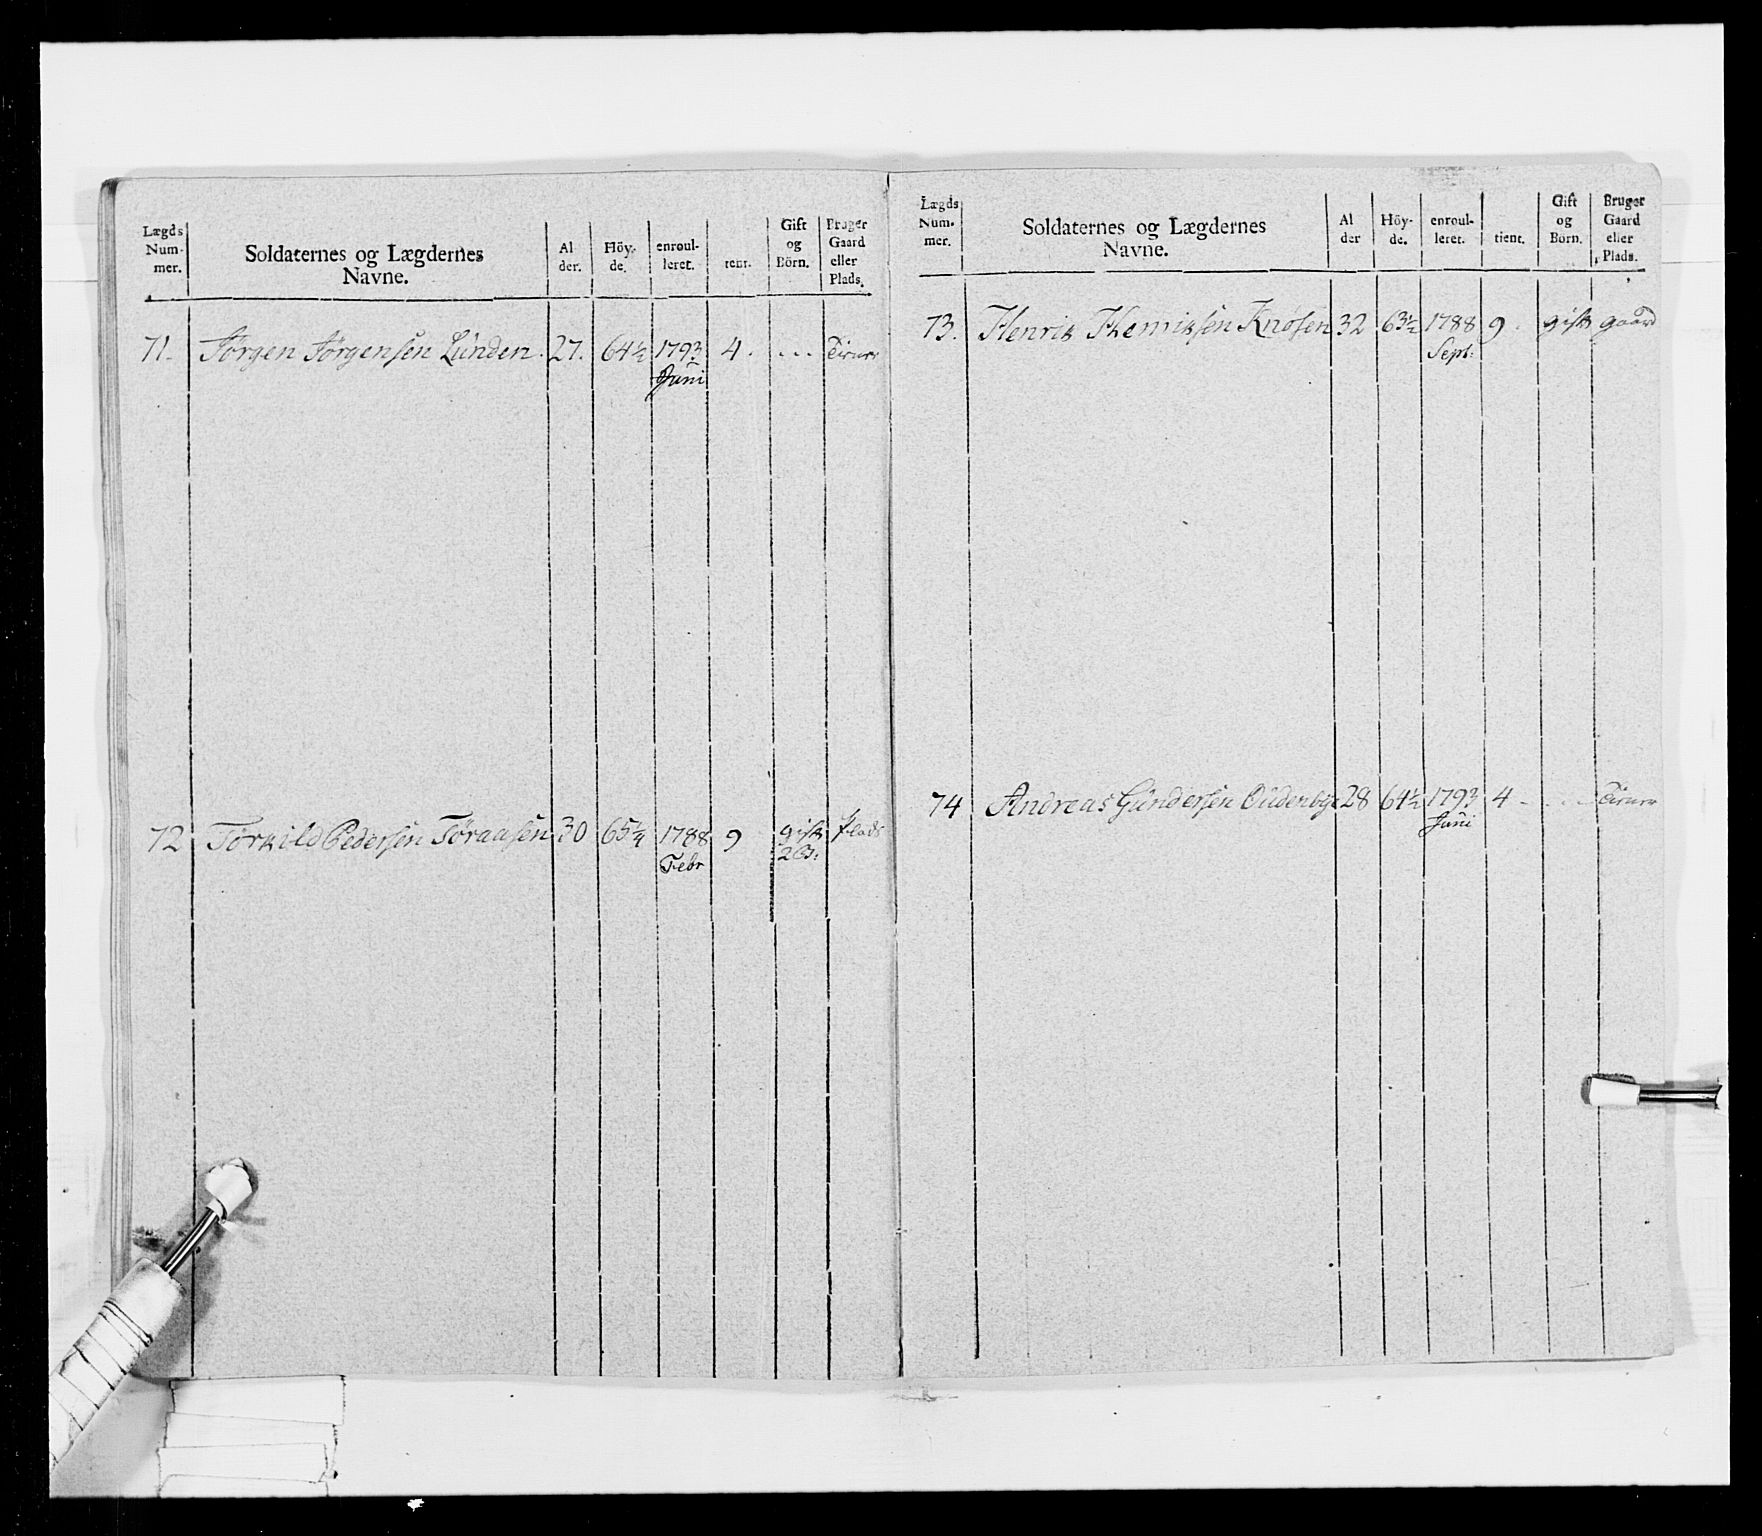 Lægds Num- mer.
Soldaternes og Lægdernes Navne.
Al der.
Höy- de.
enroul- leret.
tent.
Gift og Börn.
Bruger Gaard eller Plads.
71. Jørgen Jørgensen Lunden. 27. 64½ 1793 4. ... Tiener
Juni
72 Torkild Pedersen Toraasen 30 65¼ 1788 9 gift plads
Febr 2 B:
Lægds Num- mer.
Soldaternes og Lægdernes Navne.
Al der
Höy- de.
enroul- leret.
tient.
Gift og Börn.
Bruger Gaard eller Plads.
73. Henrik Henriksen Knosen 32 63½ 1788 9. gift gaard
Sept:
74 Andreas Gundersen 28 64½ 1793 4 - . . - Tiener
Juni